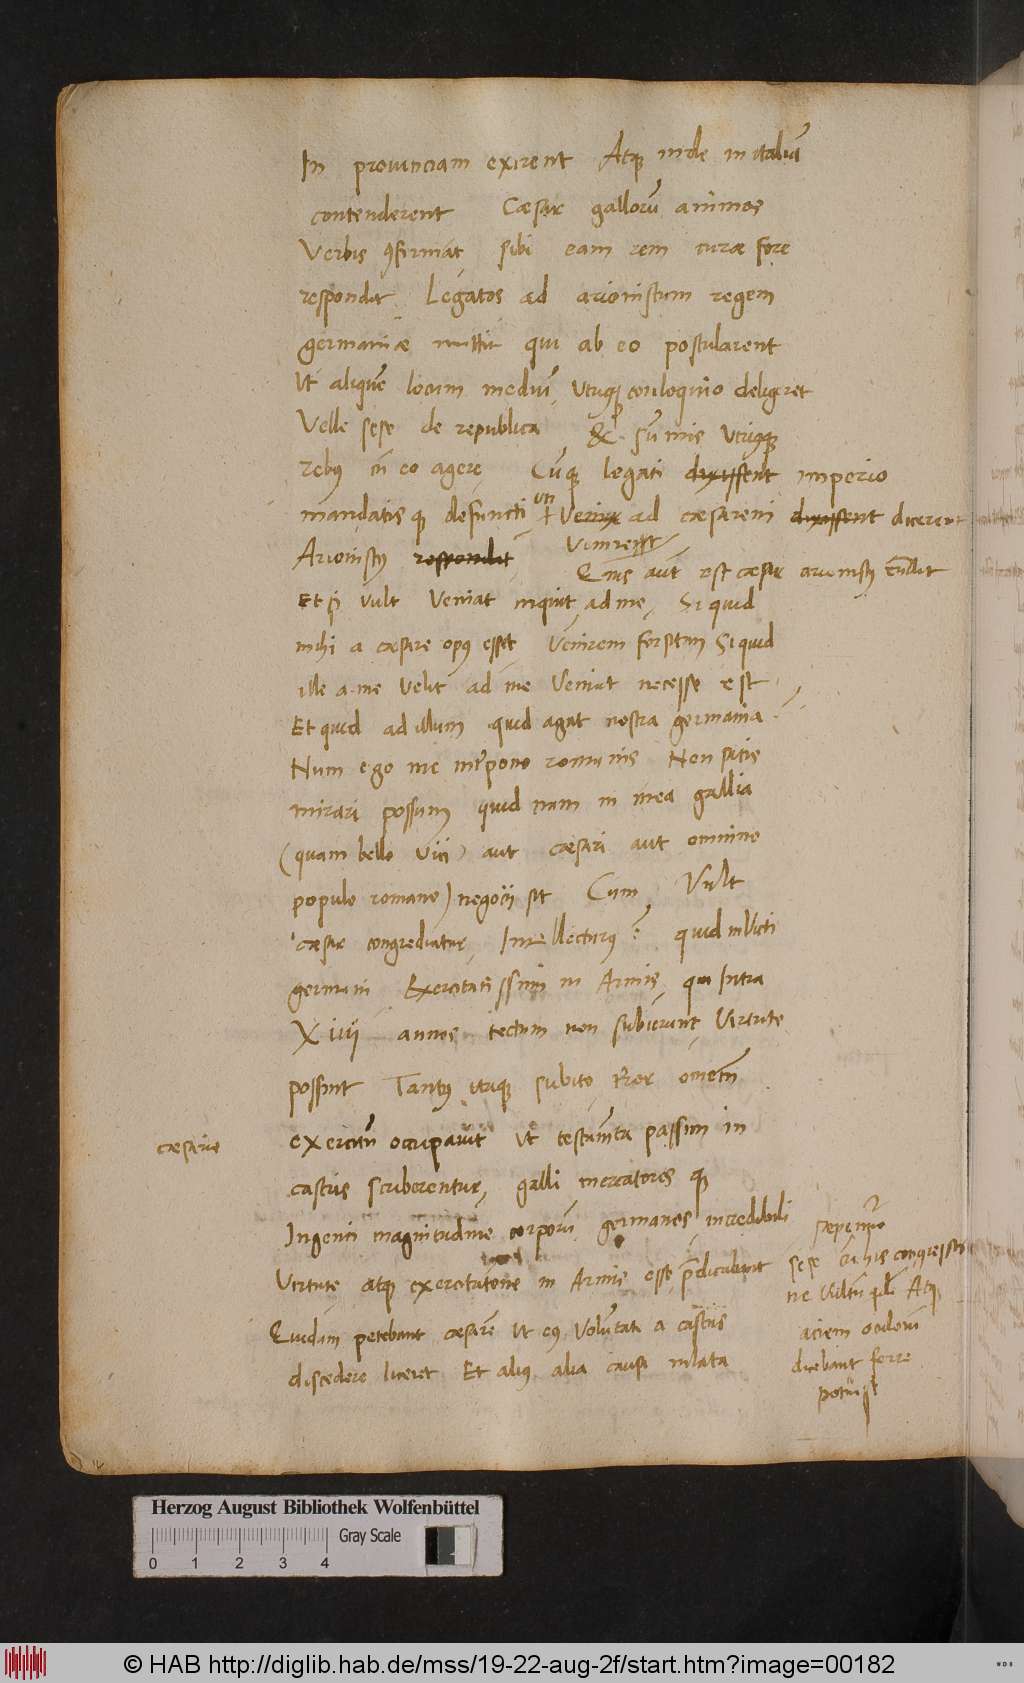 In prouinciam exirent Atq; inde in italiã
contenderent Cæsar gallorũ animos
Verbis ꝯfirmat, sibi eam rem curæ fore
respondit, Legatos ad arionistum regem
germaniæ mittit qui ab eo postularent
Ut aliquẽ locum mediũ, utriq; conloquio deligeret
Velle sese de republica & sũmis utriusq;
rebꝰ cũ eo agere, Cũq; legati dixissent imperio
mandatisq; defuncti uti Venire ad cæsarem dixissent dicerent
Arionistꝰ respondit, Venisset
Et si vult Veniat inquit, ad me, Si quid
mihi a cæsare opꝰ esset, Venirem forsitan Si quid
ille a me velit ad me Veniat necesse est
Et quid ad illum quid agat nostra germania
Num ego me interpono romanis Non satis
mirari possum quid nam in mea gallia
(quam bello vici) aut cæsari aut omnino
populo romano) negocij sit Cum Vult
cæsar congrediatur, Intellecturꝰ: quid inVicti
germani Exercitatissimi in Armis, qui Intra
Xiiij annos tectum non subierunt, Virtute
possint Tantꝰ itaque subito Error omnem
cæsaris
exercitũ occupauit Ut testamẽta passim in
castris scriberentur, galli mercatores q;
Ingenti magnitudine corporũ germanos, incredibili
Virtute atq; exercitatione in Armis esse prædicabant
sæpenũero
sese cũ his congressos
ne Vultũ quidem Atq;
aciem oculorũ
dicebant ferre
potuisse
Quidam petebant cæsarẽ Ut eiꝰ Volũtate a castris
discedere liceret Et aliꝰ alia causa inlata
Herzog August Bibliothek Wolfenbüttel
Gray Scale
0 1 2 3 4
© HAB http://diglib.hab.de/mss/19-22-aug-2f/start.htm?image=00182